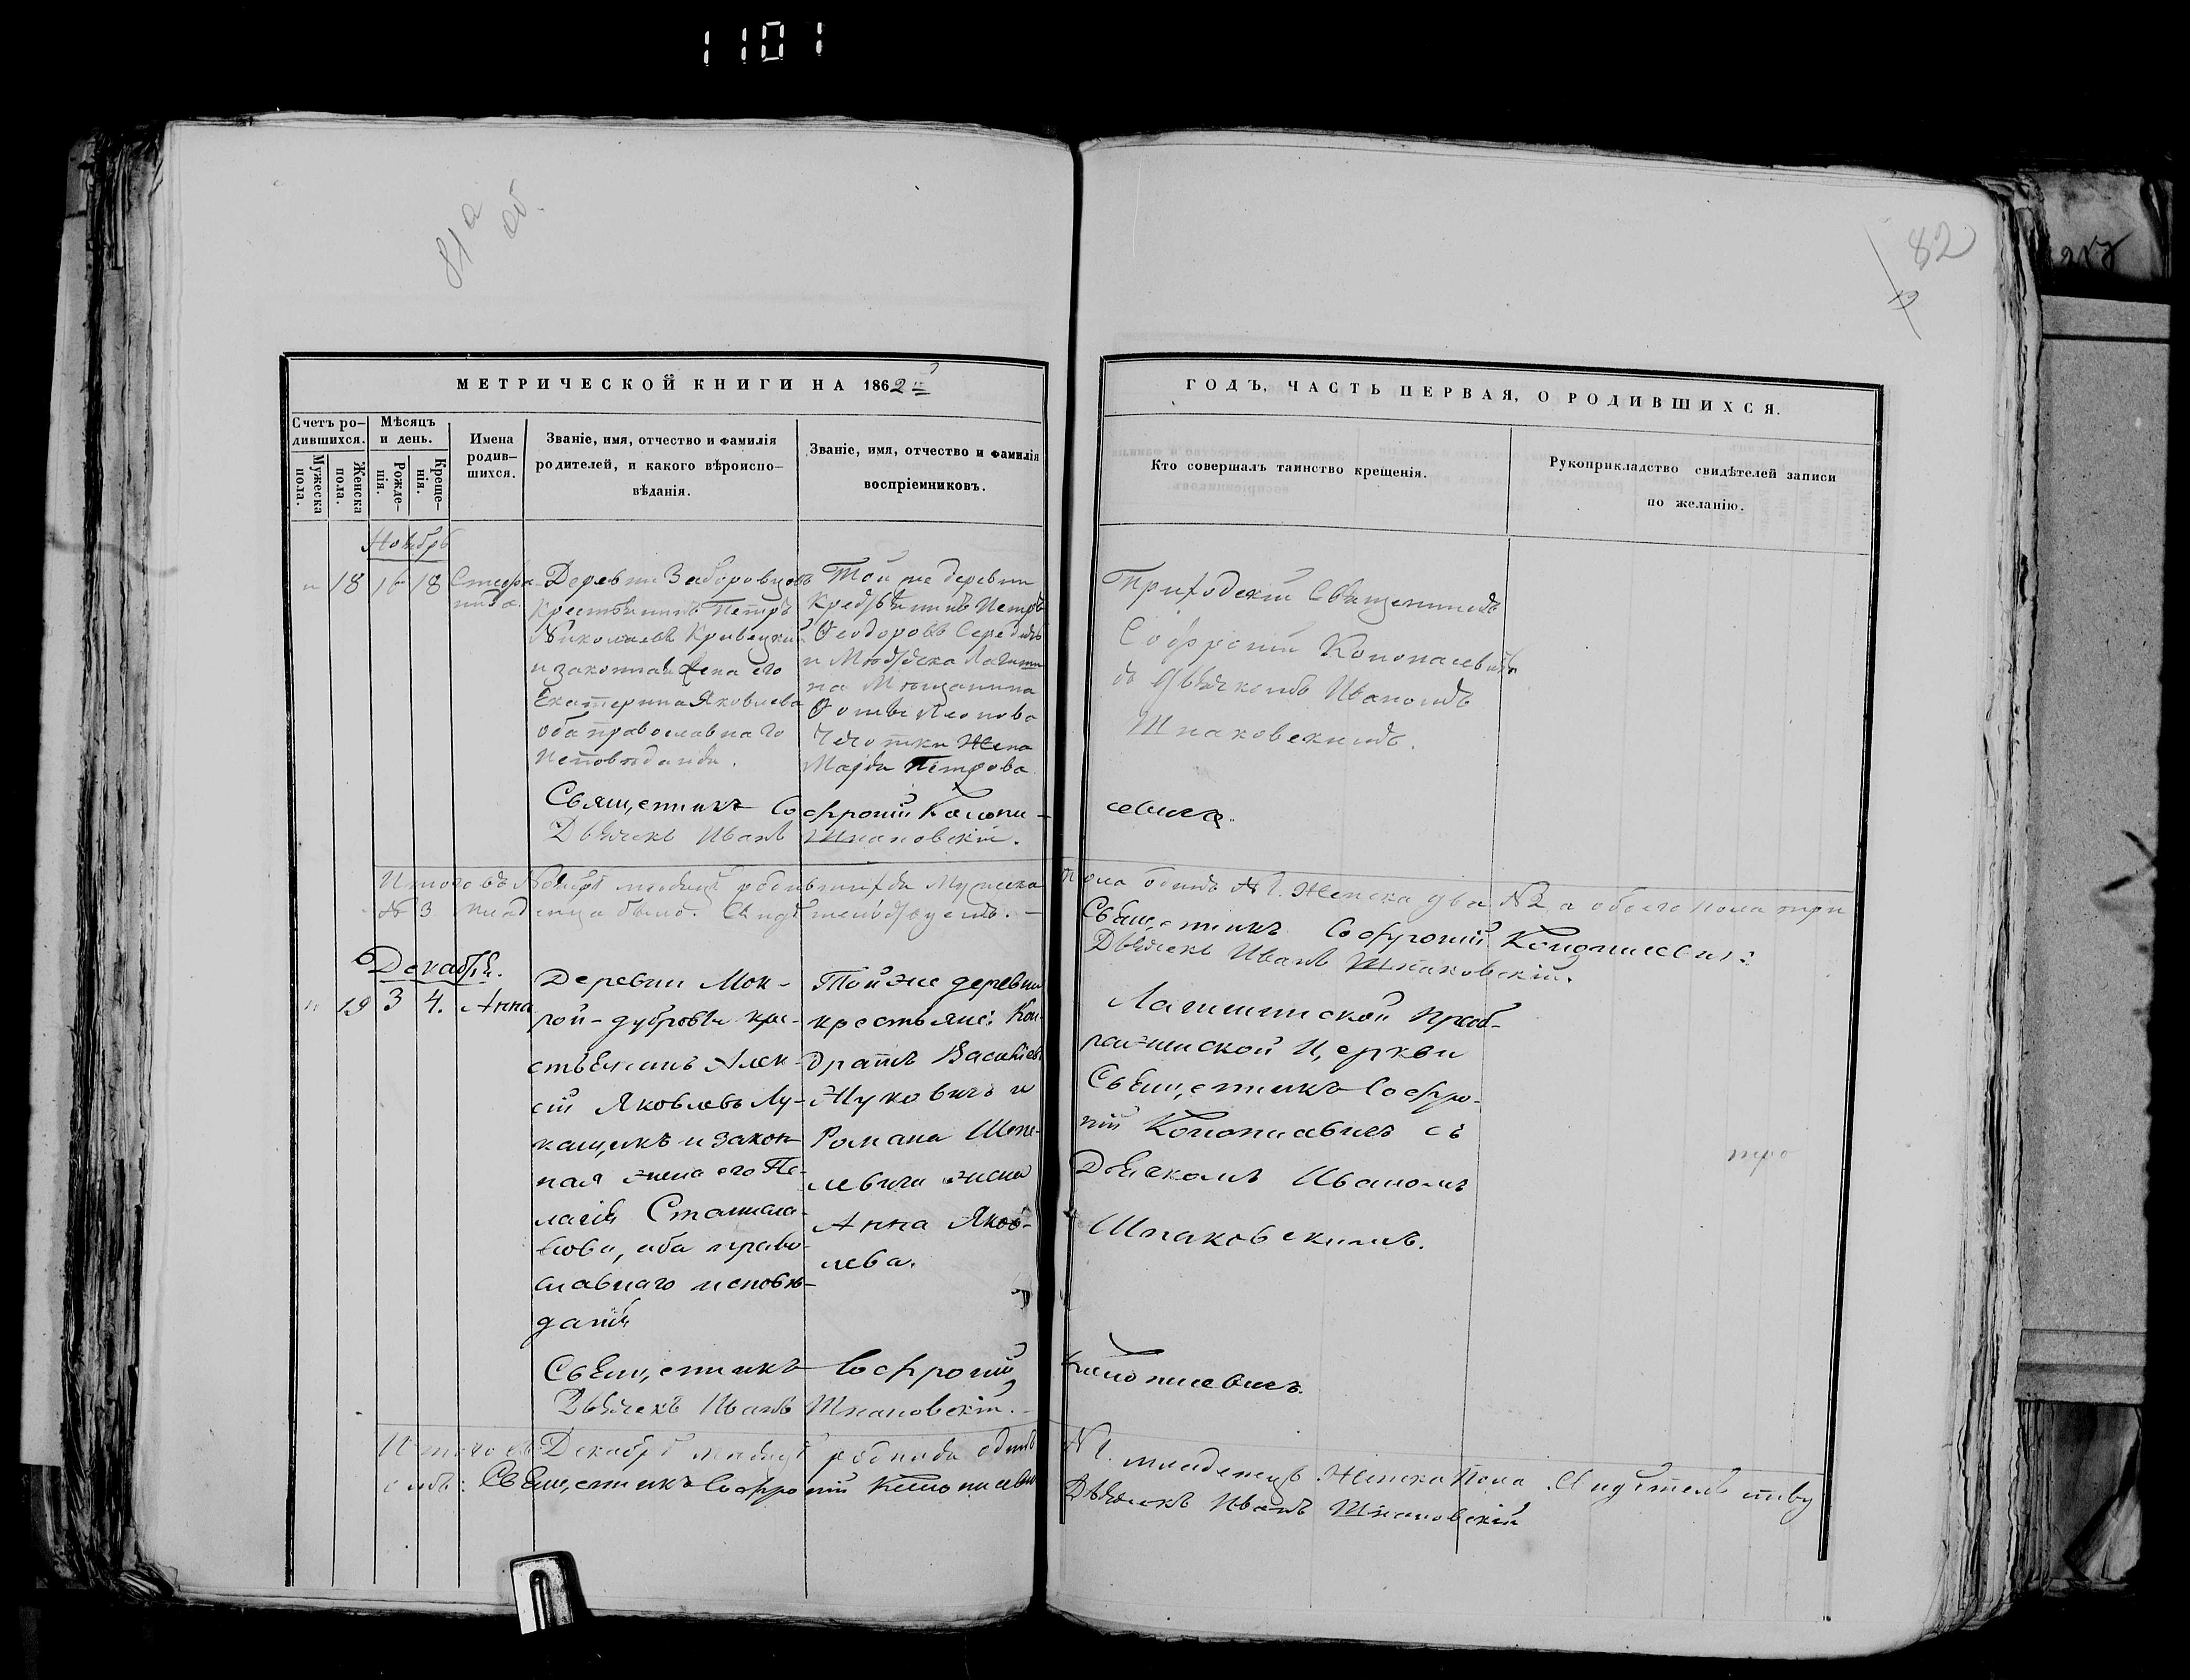 1101
81а
об.
82
МЕТРИЧЕСКОЙ КНИГИ НА 1862
ГОДЪ, ЧАСТЬ ПЕРВАЯ, О РОДИВШИХСЯ.
Счетъ ро-
дившихся.
Мужеска
пола.
Женска
пола.
Мѣсяцъ
и день.
Рожде-
нія.
Креще-
нія.
Имена
родив-
шихся.
Званіе, имя, отчество и фамилія
родителей, и какого вѣроиспо-
вѣданія.
Званіе, имя, отчество и фамилія
воспріемниковъ.
Кто совершалъ таинство крещенія.
Рукоприкладство свидѣтелей записи
по желанію.
Ноябрь
" 18 16 18 Стефа-
нида.
Деревни Заборовцовъ
Крестьянинъ Петръ
Николаевъ Кривецкій
и законная жена его
Екатерина Яковлева
оба православнаго
исповѣданія.
Той же деревни
крестьянинъ Петръ
Ѳеодоровъ
и
на Мѣщанина
Ѳомы
жена
Марья Петрова
Приходскій Священникъ
Софроній Кононасевичъ
съ Дьячкомъ Иваномъ
Шпаковскимъ.
Священникъ Софроній Конона-
севичъ
Дьячекъ Иванъ Шпаковскій.
Итого въ Ноябрѣ мѣсяцѣ родившихся Мужеска пола одинъ №1. Женска два №2 а обоего пола три
№ 3 младенца было. Свидѣтельствуемъ.
Священникъ Софроній
Дьячекъ Иванъ Шпаковскій.
Декабрь.
" 19 3 4. Анна
Деревни Мок-
рой-дубровы кре-
стьянинъ Алек-
сій Яковлевъ Лу-
кащикъ и закон-
ная жена его Пе-
лагія Станисла-
вова, оба право-
славнаго исповѣ-
данія
Той же деревни
крестьяне: Кон-
дратъ Васильевъ
Жуковичъ и
Романа Шепе-
левича жена
Анна Яков-
лева.
Лагишинской Преоб-
раженской Церкви
Священникъ Софро-
ній Кононасевичъ съ
Дьячкомъ Иваномъ
Шпаковскимъ.
Священникъ Софроній Кононасевичъ.
Дьячекъ Иванъ Шпаковскій.
Итого въ Декабрѣ мѣсяцѣ родился одинъ №1. младенецъ Женска Пола. Свидѣтельству
емъ: Священникъ Софроній Кононасевичъ
Дьячекъ Иванъ Шпаковскій